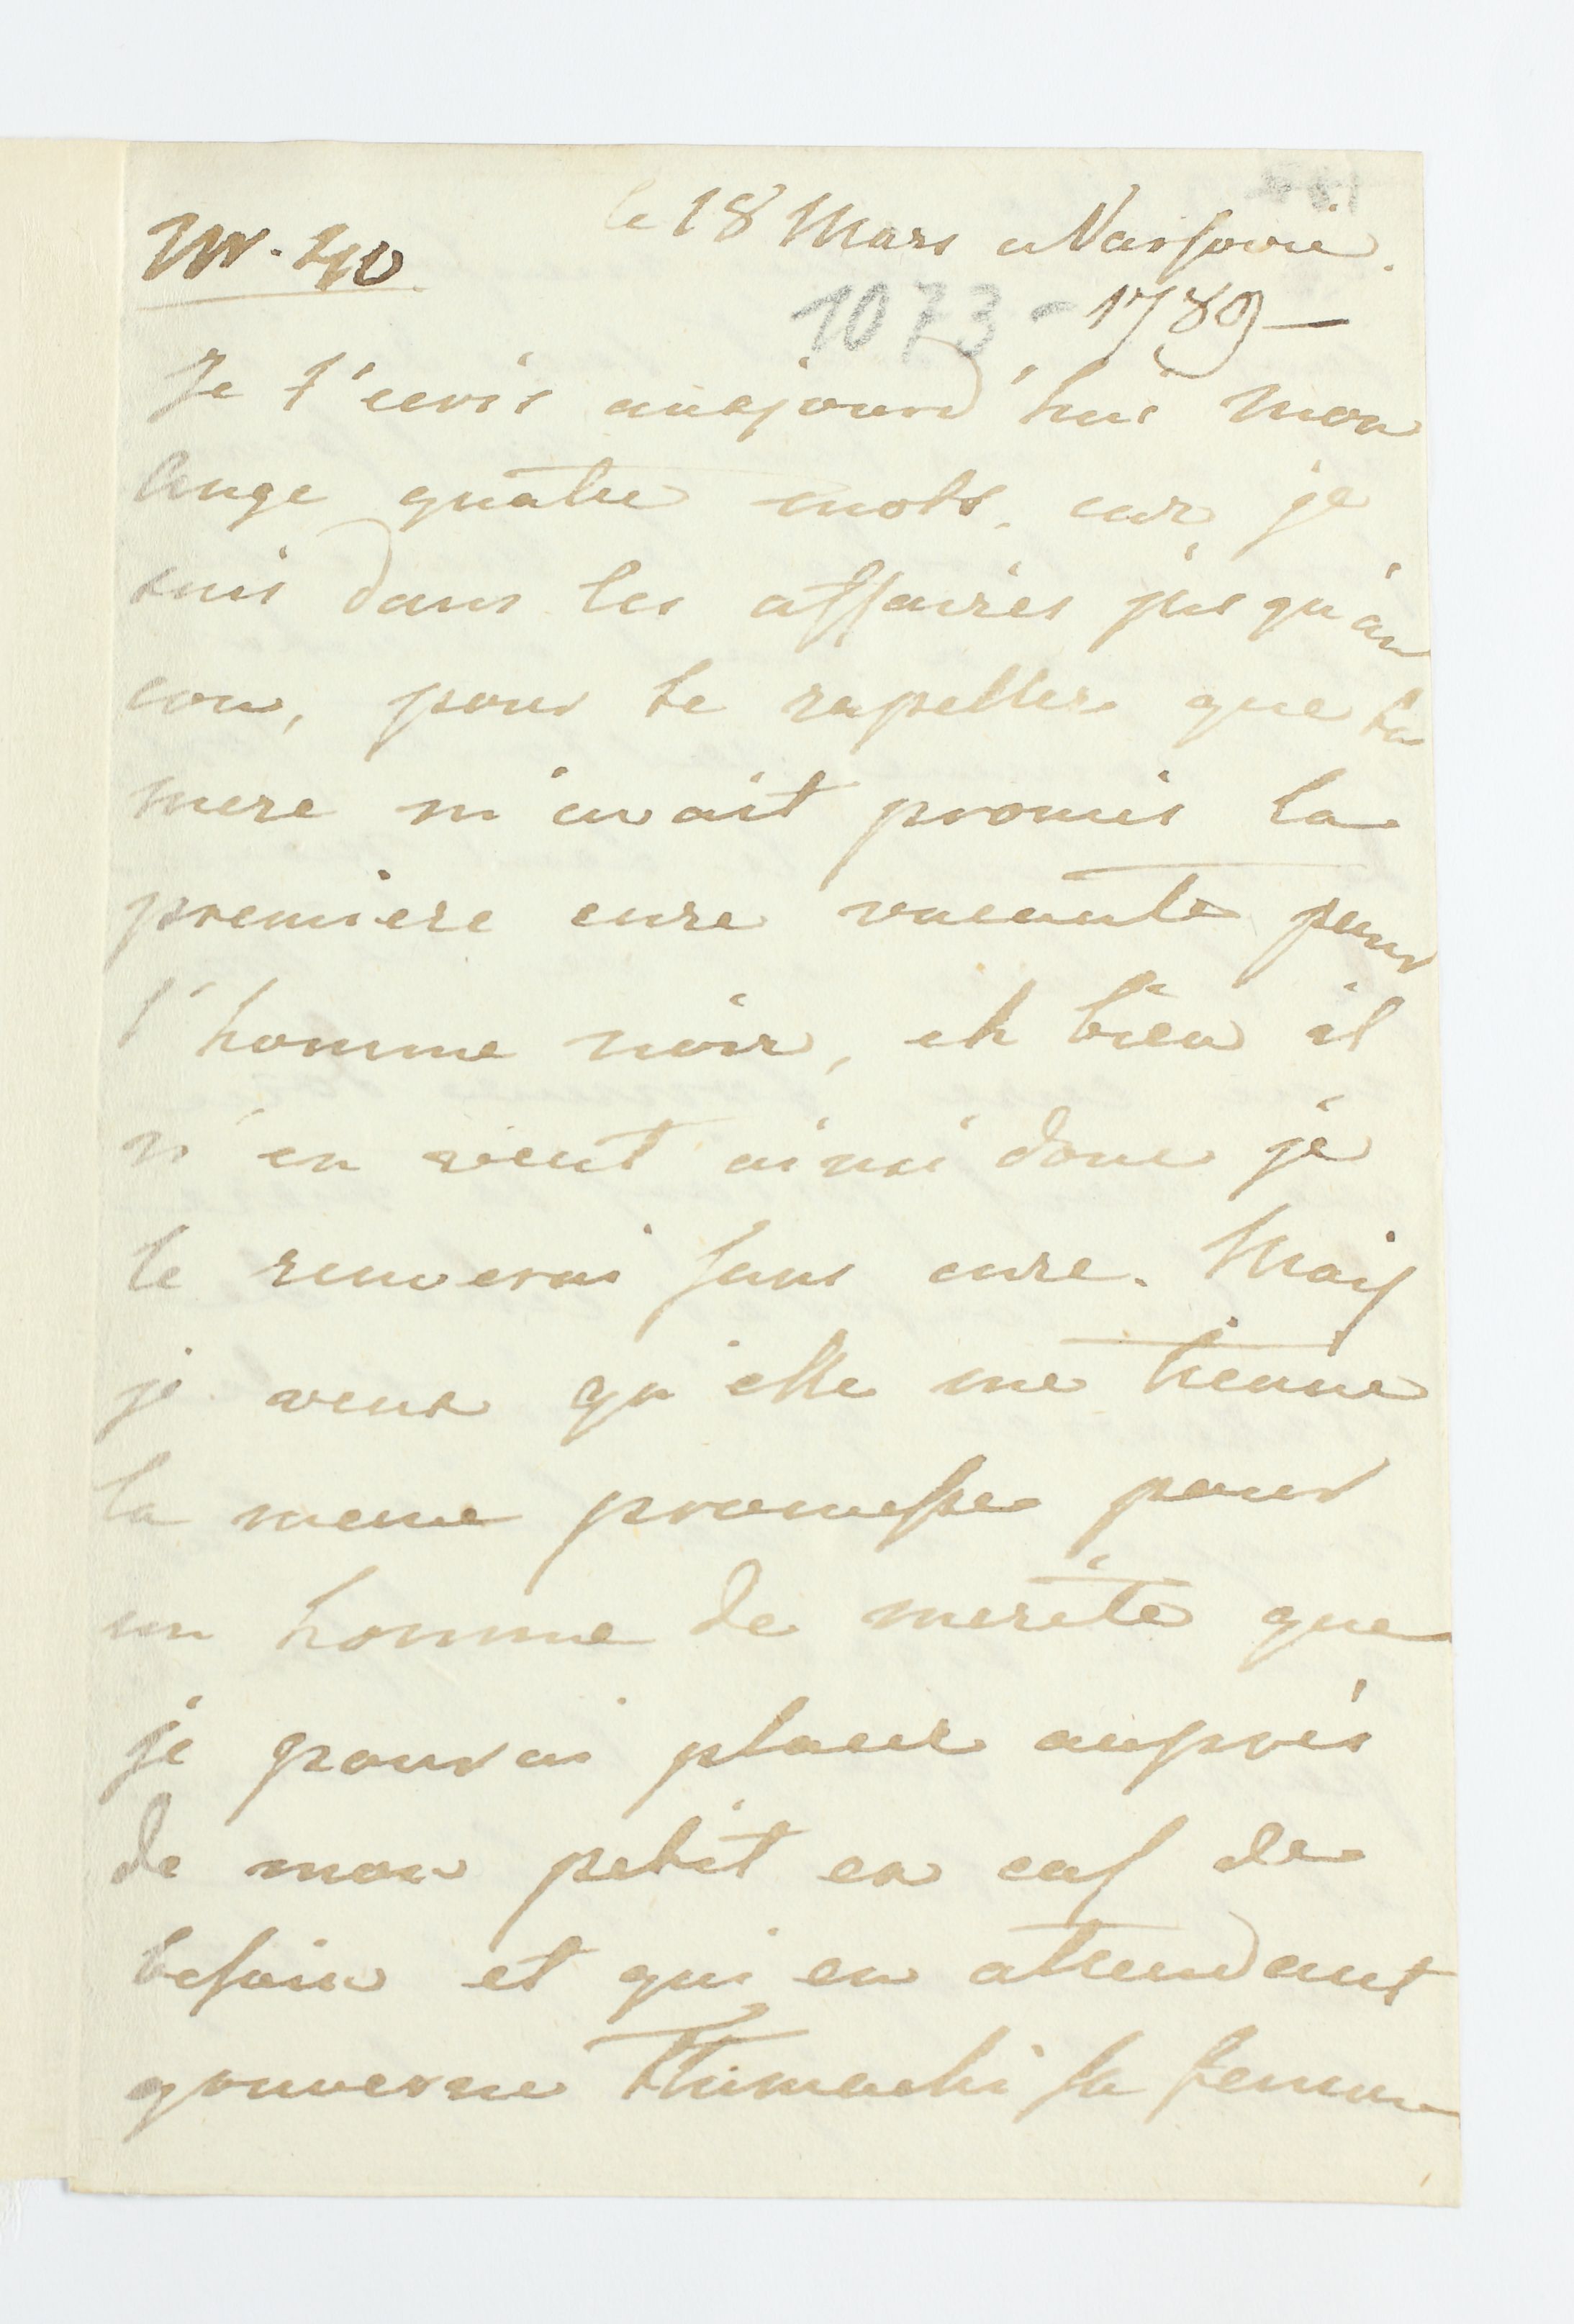 Nr. 40
le 18 Mars a Varsovie.
1073 - 1789 -
Je t'ecris aujourd'hui mon
ange quatre mots. car je
suis dans les affaires jusqu'au
cou, pour te rapeller que ta
mere m'avait promis la
premiere cure vacante pour
l'homme noir, eh bien il
n'en veut ainsi donc je
le renverai sans cure. Mais
je veux qu'elle me tienne
la meme promesse pour
un homme de merite que
je pourai placer auprés
de mon petit en cas de
besoin et qui en attendant
gouverne sa femme